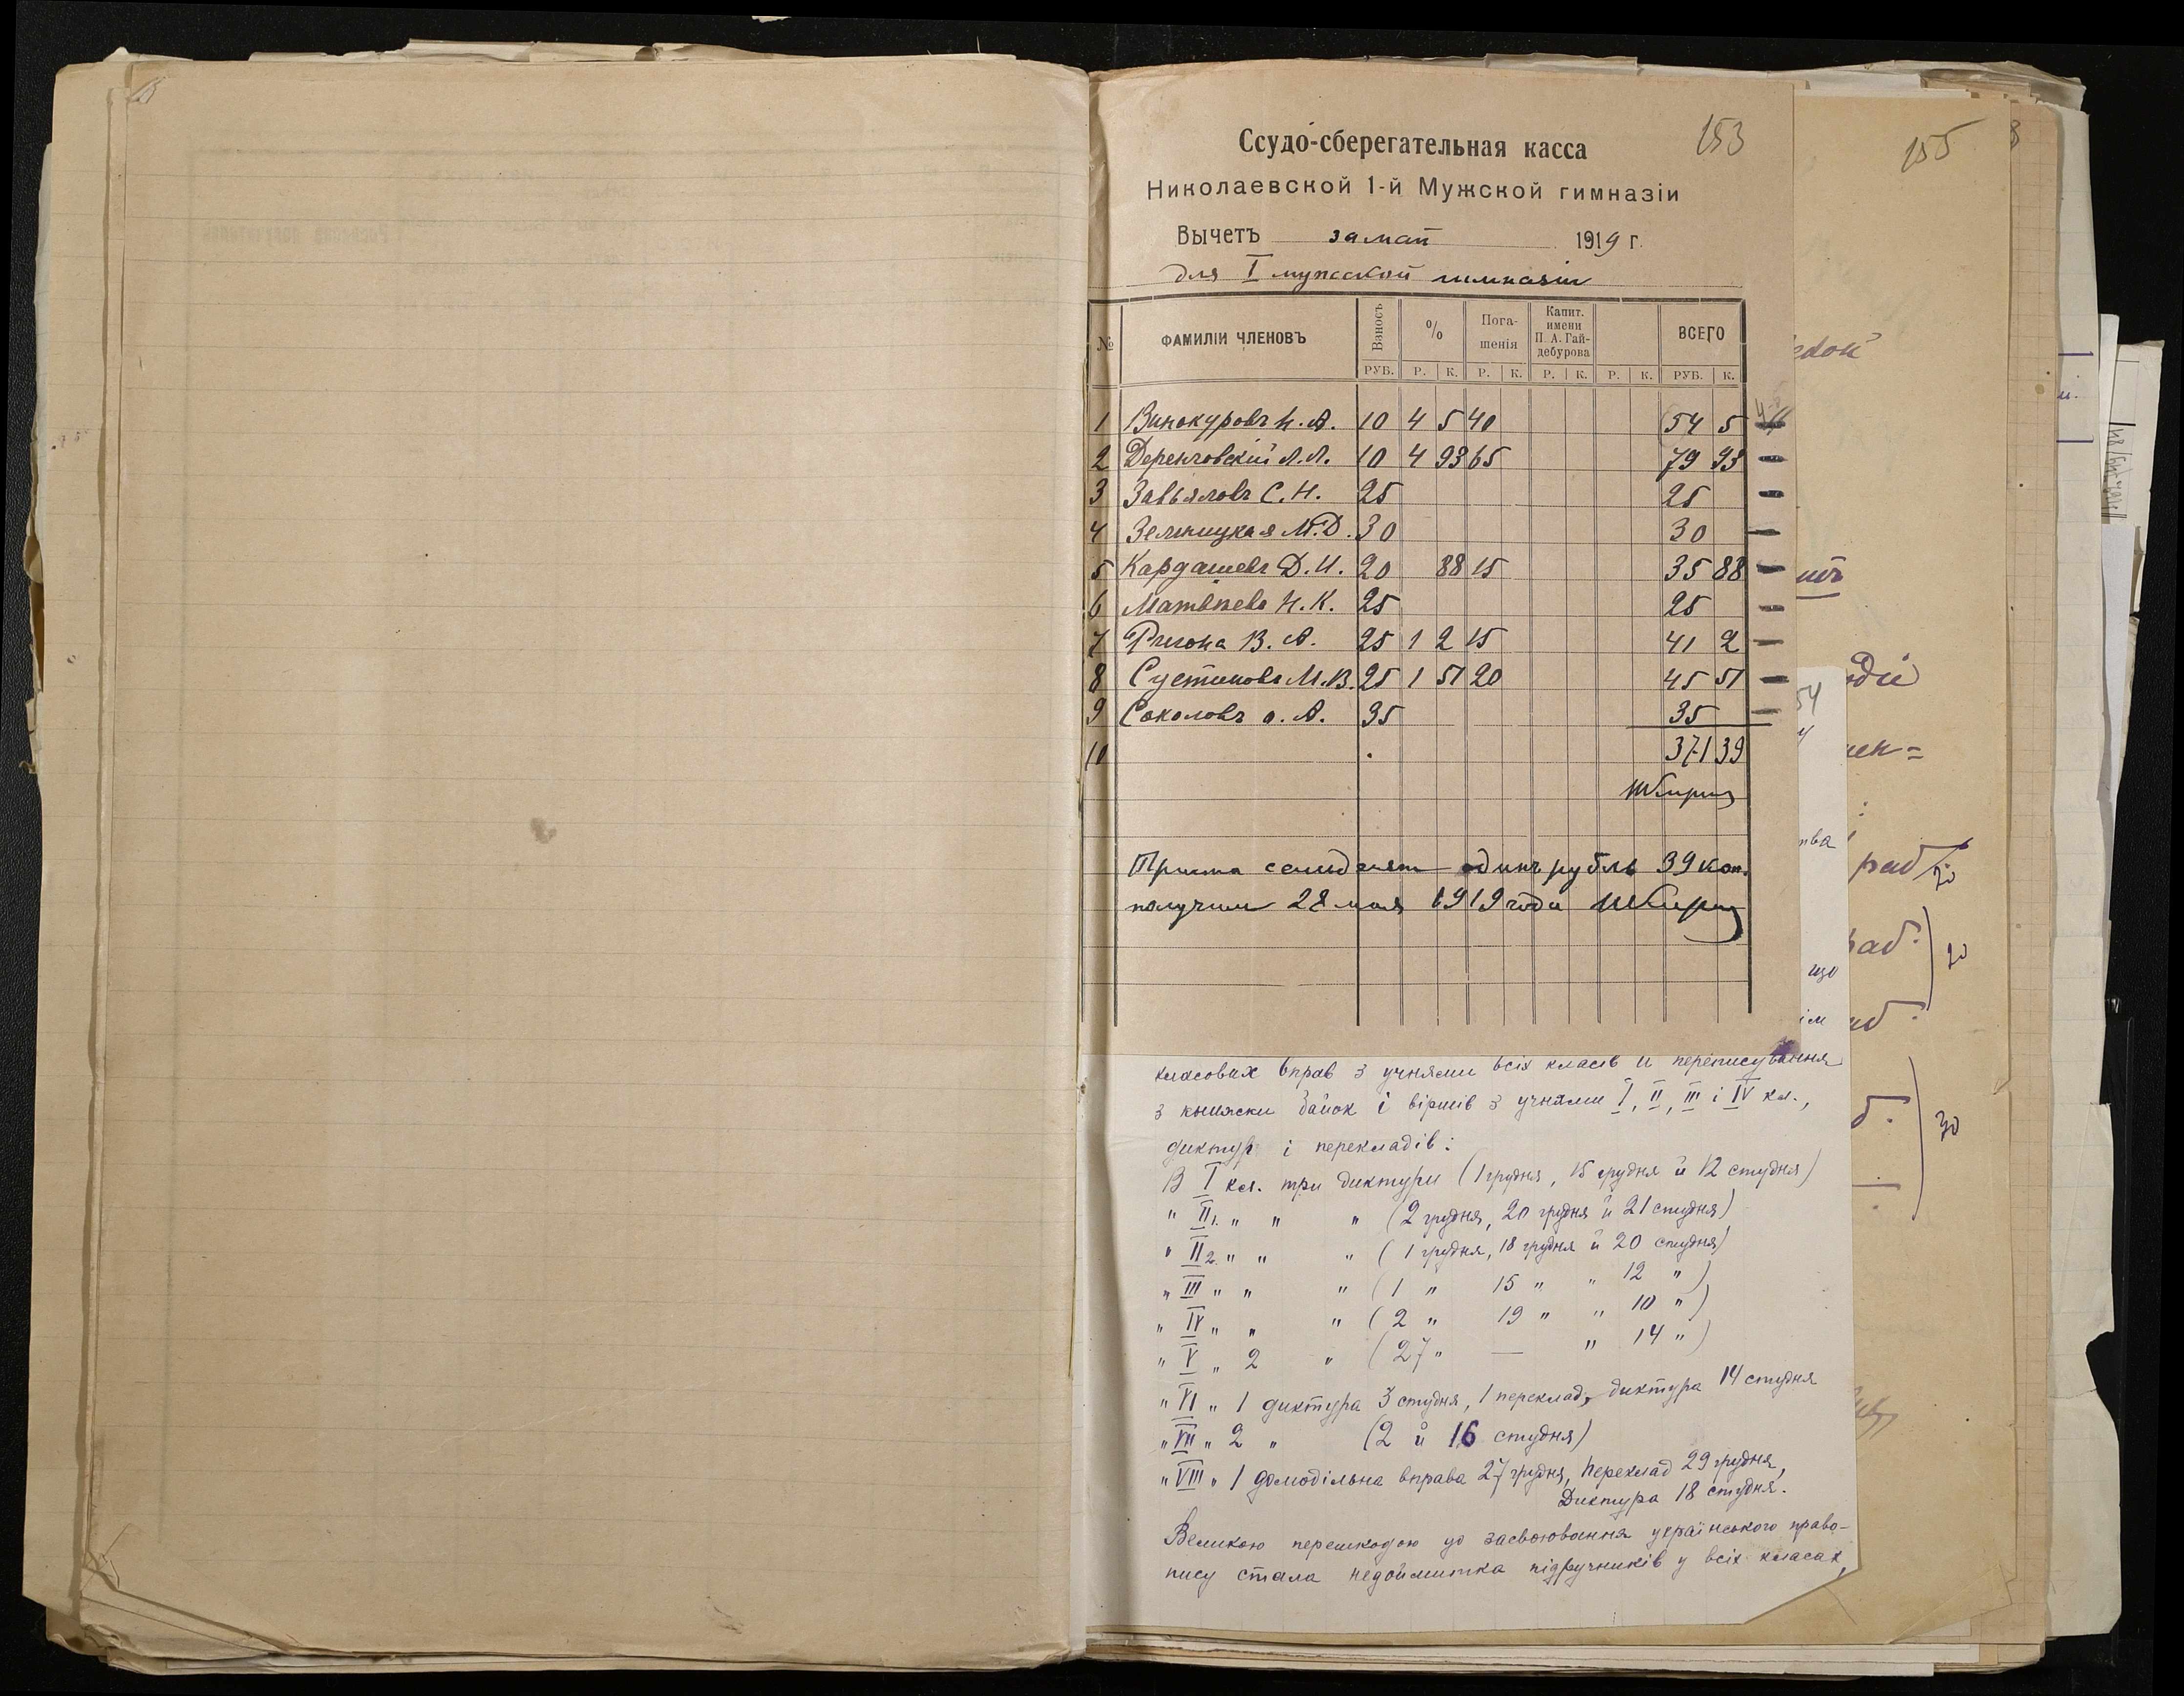 153
Ссудо-сберегательная касса
Николаевской 1-й Мужской гимназіи
Вычетъ за май 1919 г.
для I мужской гимназіи
№ ФАМИЛІИ ЧЛЕНОВЪ Взносъ % Пога-шенія Капит. имени П. А. Гай-дебурова ВСЕГО
РУБ. Р. К. Р. К. Р. К. Р. К. РУБ. К.
1 Винокуровъ Н. А. 10 4 5 40 54 5
2 Деренговскій Л. Л. 10 4 93 65 79 93
3 Завьяловъ С. Н. 25 25
4 Зелницкая М. Д. 30 30
5 Кардашевъ Д. И. 20 88 15 35 88
6 Матвѣевъ Н. К. 25 25
7 В. А. 25 1 2 15 41 2
8 Сустиновъ М. В. 25 1 51 20 45 51
9 Соколовъ А. 35 35
10 371 39
Триста семьдесят один рубль 39 коп.
получил 28 мая 1919 года
155
54
класових вправ з учнями всіх класів й переписування
з книжки байок і віршів з учнями I, II, III і IV кл.,
диктур і перекладів:
В I кл. три диктури (1 грудня, 15 грудня й 12 студня)
" II1. " " " (2 грудня, 20 грудня й 21 студня)
" II2. " " " (1 грудня, 18 грудня й 20 студня)
" III " " " (1 " 15 " " 12 ")
" IV " " " (2 " 19 " " 10 ")
" V " 2 " (27 " — " 14 ")
" VI " 1 диктура 3 студня, 1 переклад, диктура 14 студня
" VII " 2 " (2 й 16 студня)
" VIII " 1 домодільна вправа 27 грудня, переклад 29 грудня,
Диктура 18 студня.
Великою перешкодою до засвоювання українського право-
пису стала недоймитка підручників у всіх класах,
20
30